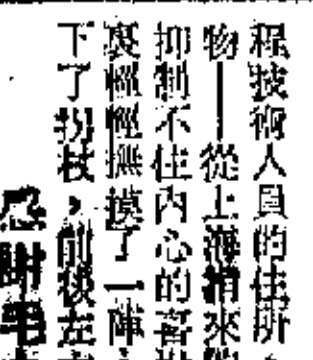 程技術人員的住所
物——從上海捎來
抑制不住內心的喜
裏輕輕撫摸了一陣
下了拐杖，前後左
感謝毛